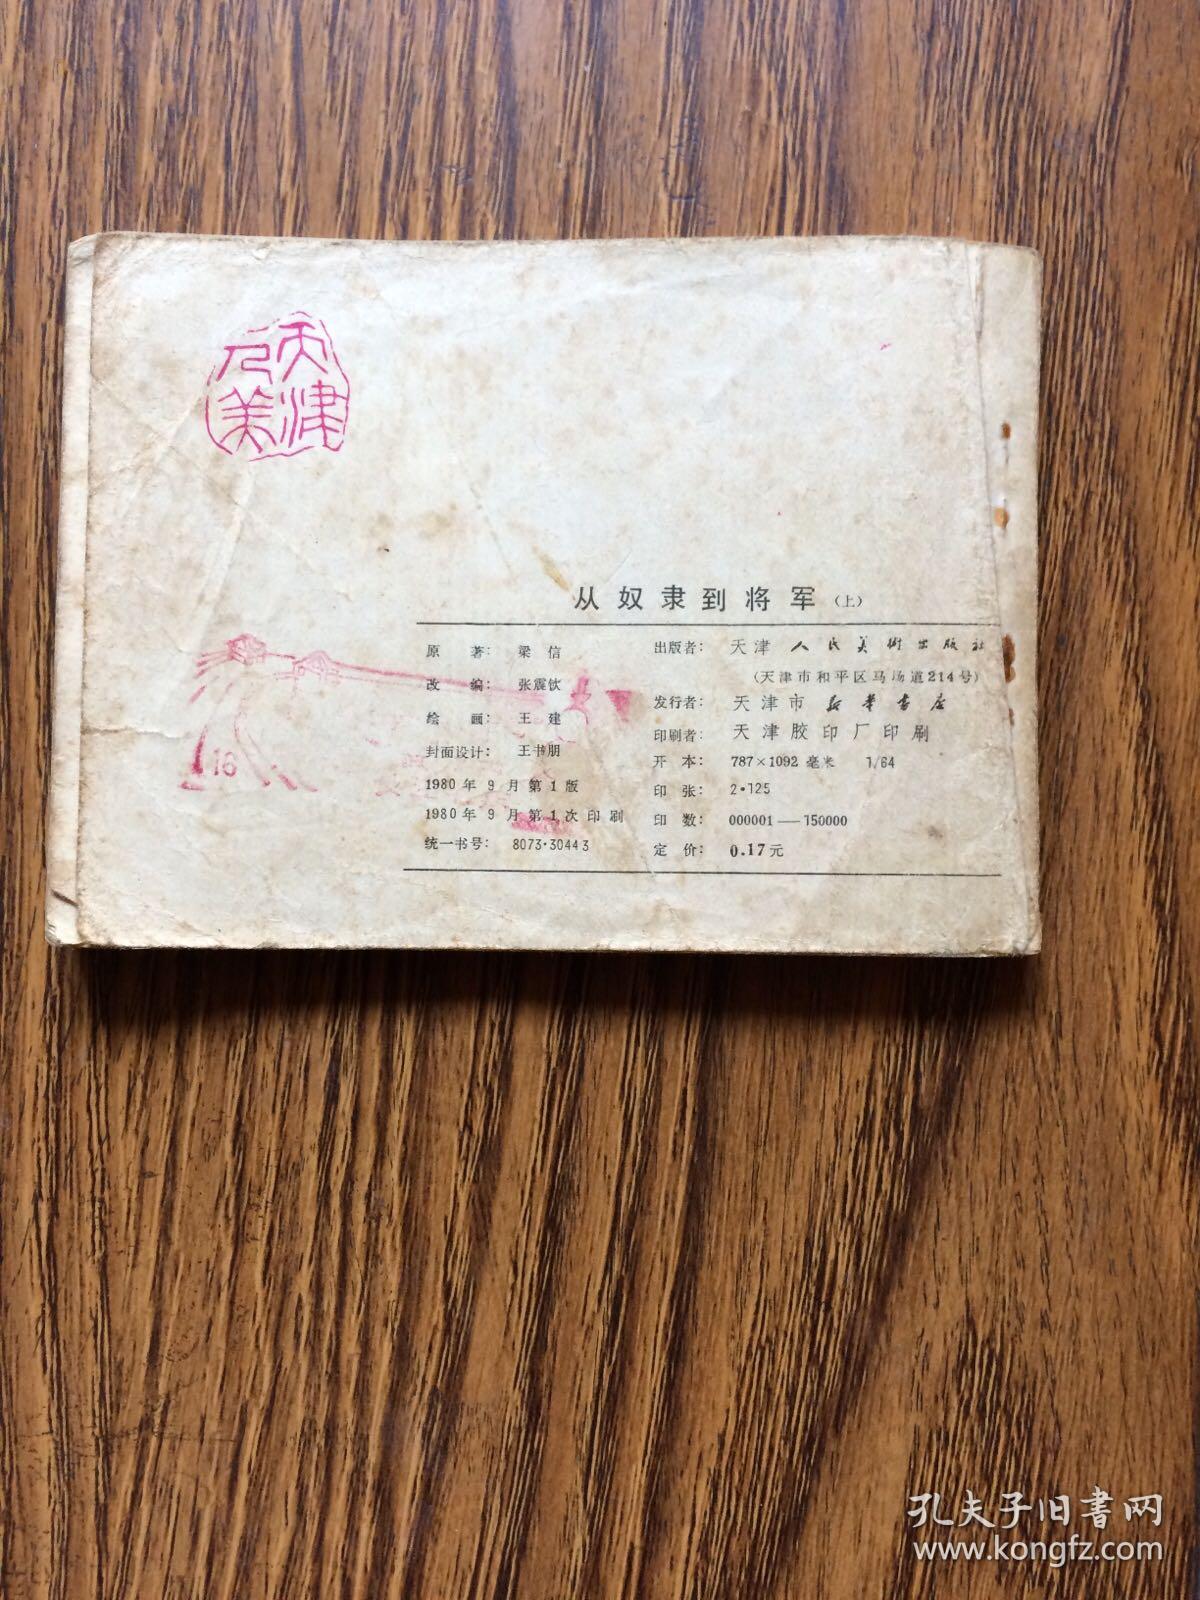 天津
人美
从奴隶到将军(上)
原 著: 梁 信
改 编: 张震钦
绘 画: 王 建
封面设计: 王书朋
1980年9月第1版
1980年9月第1次印刷
统一书号: 8073·30443
出版者: 天津人民美術出版社
(天津市和平区马场道214号)
发行者: 天津市新华书店
印刷者: 天津胶印厂印刷
开 本: 787×1092毫米 1/64
印 张: 2·125
印 数: 000001—150000
定 价: 0.17元
16
孔夫子旧書网
www.kongfz.com